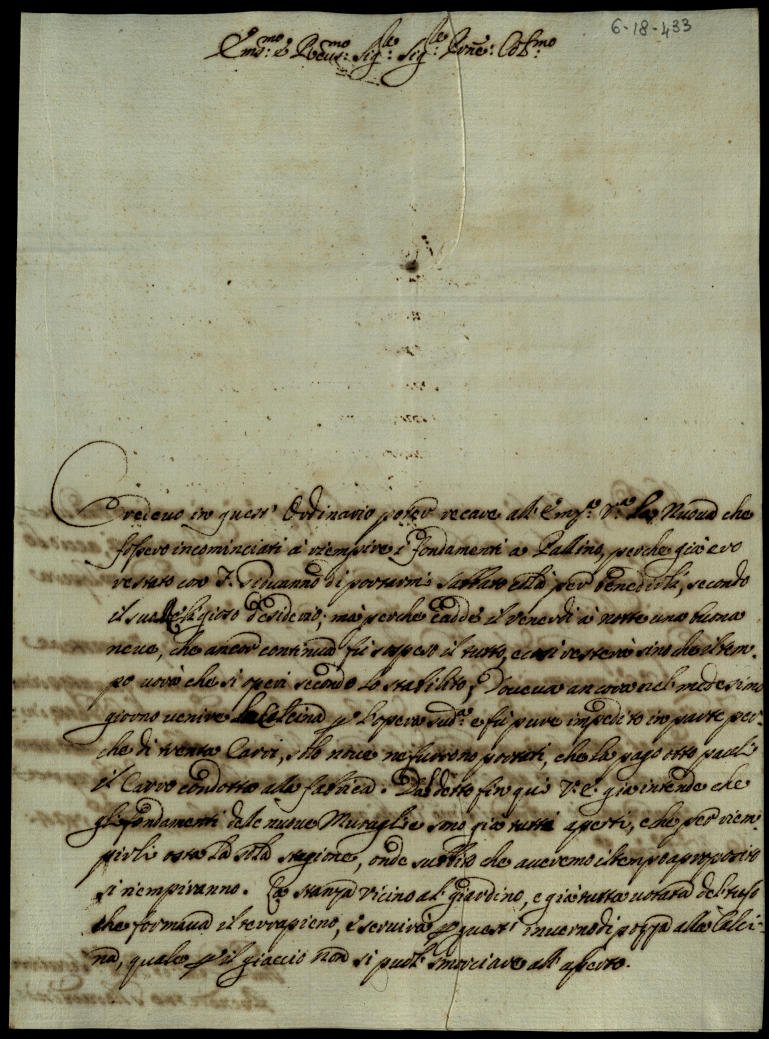 6-18-433
Em.mo e Reu.mo Sig.re Sig.re Prōne: Col.mo
Credeuo in quest' Ordinario poter recare all' Em.za V.ra La Nuoua che
fossero incominciati à riempire i fondamenti a Pallino, perche già ero
restato con di portarmi Sabbato colà per benedirli, secondo
il suo Religioso desiderio; mà perche cadde il venerdi à notte una buona
neue, che ancor continua fù sospeso il tutto, e cosi resterà sino che il tem-
po uorà che si operi secondo lo stabilito; Doueua ancora nel medesimo
giorno uenire La Calcina p l'opera sud.a e fù pure impedito in parte per-
che di trenta Carri, solo noue ne furono portati, che la pago otto paoli
il Carro condotta alla fabrica. Dal detto fin quì V. E. già intende che
gli fondamenti dele nuoue Muraglie sono già tutti aperti, e che per riem-
pirli osta La sola stagione, onde subito che aueremo il tempo a proposito
si riempiranno. La stanza uicino al giardino, e già tutta uotata del tufo
che formaua il terrapieno, e seruirà p quest' inuerno di pozza alla Calci-
na, quale p il giaccio non si può smorciare all' aperto.